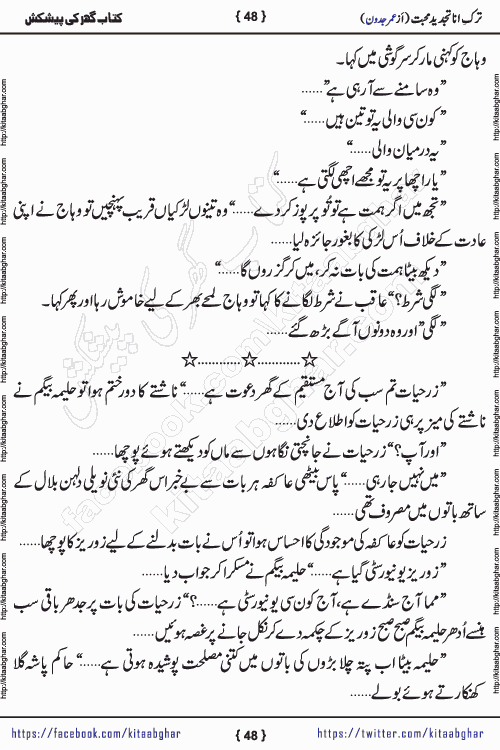 ترکِ انا تجدیدِ محبت (از عمر جدون)
{ 48 }
کتاب گھر کی پیشکش
وہاج کو کہنی مار کر سرگوشی میں کہا۔
”وہ سامنے سے آ رہی ہے“......
”کون سی والی یہ تو تین ہیں......“
”یہ درمیان والی......“
”یار اچھا پر یہ تو مجھے اچھی لگتی ہے......“
”تجھ میں اگر ہمت ہے تو تُو پرپوز کر دے......“ وہ تینوں لڑکیاں قریب پہنچیں تو وہاج نے اپنی
عادت کے خلاف اُس لڑکی کا بغور جائزہ لیا......
”دیکھ بیٹا ہمت کی بات نہ کر، میں کر گزروں گا......“
”لگی شرط؟“ عاقب نے شرط لگانے کا کہا تو وہاج لمحے بھر کے لیے خاموش رہا اور پھر کہا۔
”لگی“ اور وہ دونوں آگے بڑھ گئے......
☆............☆............☆
”زرحیات تم سب کی آج مستقیم کے گھر دعوت ہے......“ ناشتے کا دور ختم ہوا تو حلیمہ بیگم نے
ناشتے کی میز پر ہی زرحیات کو اطلاع دی......
”اور آپ؟“ زرحیات نے جانچتی نگاہوں سے ماں کو دیکھتے ہوئے پوچھا......
”میں نہیں جا رہی......“ پاس بیٹھی عاکفہ ہر بات سے بے خبر اس گھر کی نئی نویلی دلہن بلال کے
ساتھ باتوں میں مصروف تھی......
زرحیات کو عاکفہ کی موجودگی کا احساس ہوا تو اُس نے بات بدلنے کے لیے زوریز کا پوچھا......
”زوریز یونیورسٹی گیا ہے......“ حلیمہ بیگم نے مسکرا کر جواب دیا......
”مما آج سنڈے ہے، آج کون سی یونیورسٹی ہے......؟“ زرحیات کی بات پر جدھر باقی سب
ہنسے اُدھر حلیمہ بیگم صبح صبح زوریز کے چکمہ دے کر نکل جانے پر غصہ ہوئیں......
”حلیمہ بیٹا اب پتہ چلا بڑوں کی باتوں میں کتنی مصلحت پوشیدہ ہوتی ہے......“ حاکم پاشہ گلا
کھنکارتے ہوئے بولے......
https://facebook.com/kitaabghar
{ 48 }
https://twitter.com/kitaabghar
http://kitaabghar.com
http://kitaabghar.com
http://kitaabghar.com
http://kitaabghar.com
http://kitaabghar.com
http://kitaabghar.com
http://kitaabghar.com
http://kitaabghar.com
کتاب گھر کی پیشکش
facebook.com/kitaabghar
kitaabghar.com